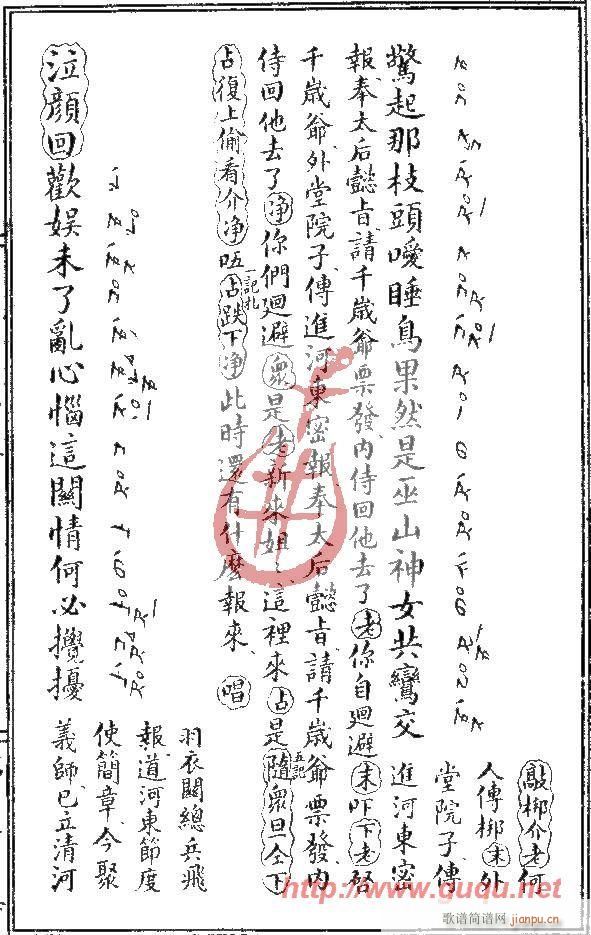 驚起那枝頭噯睡鳥果然是巫山神女共鸞交
敲梆介老何
人傳梆末外
堂院子傳
進河東密
報奉太后懿旨請千歲爺票發內侍回他去了老你自迴避末吓下老啓
千歲爺外堂院子傳進河東密報奉太后懿旨請千歲爺票發內
侍回他去了淨你們迴避衆是老新來姐〻這裡來占是五記隨衆旦仝下
占復上偷看介淨唔一記扎占跌下淨此時還有什麼報來唱
羽衣關總兵飛
報道河東節度
使簡章今聚
義師已立清河
泣顏回歡娛未了亂心惱這關情何必攪擾
http://www.ququ.net.cn
歌谱简谱网
jianpu.cn